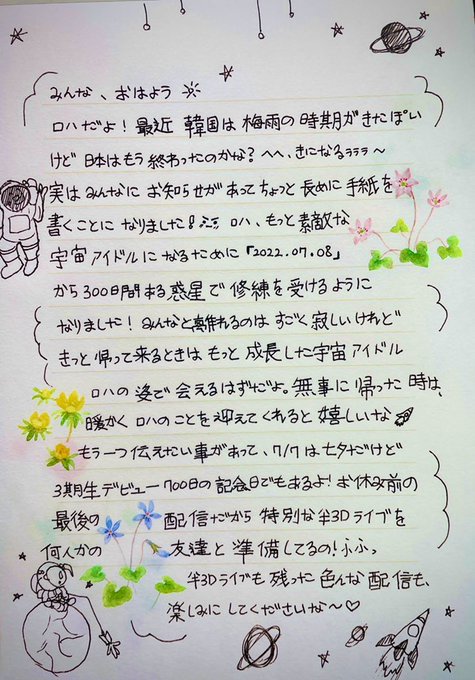 みんな、おはよう
ロハだよ！最近 韓国は 梅雨の 時期が きた ぽい
けど 日本は もう 終わったのかな？へへ、きになるううう〜
実は みんなに お知らせが あって ちょっと 長めに 手紙を
書くことに なりました！ ロハ、もっと 素敵な
宇宙アイドルに なるために「2022.07.08」
から 300日間 ある 惑星で 修練を 受けるように
なりました！みんなと 離れるのは すごく 寂しいけれど
きっと 帰って 来るときは もっと 成長した 宇宙アイドル
ロハの 姿で 会えるはずだよ。無事に 帰った 時は、
暖かく ロハのことを 迎えて くれると 嬉しいな
もう一つ 伝えたい 事が あって、7/7は 七夕だけど
3期生デビュー 700日の 記念日でもあるよ！お休み前の
最後の 配信だから 特別な 半3Dライブを
何人かの 友達と 準備してるの！ふふっ
半3Dライブも 残った 色んな 配信も、
楽しみに してくださいな〜♡